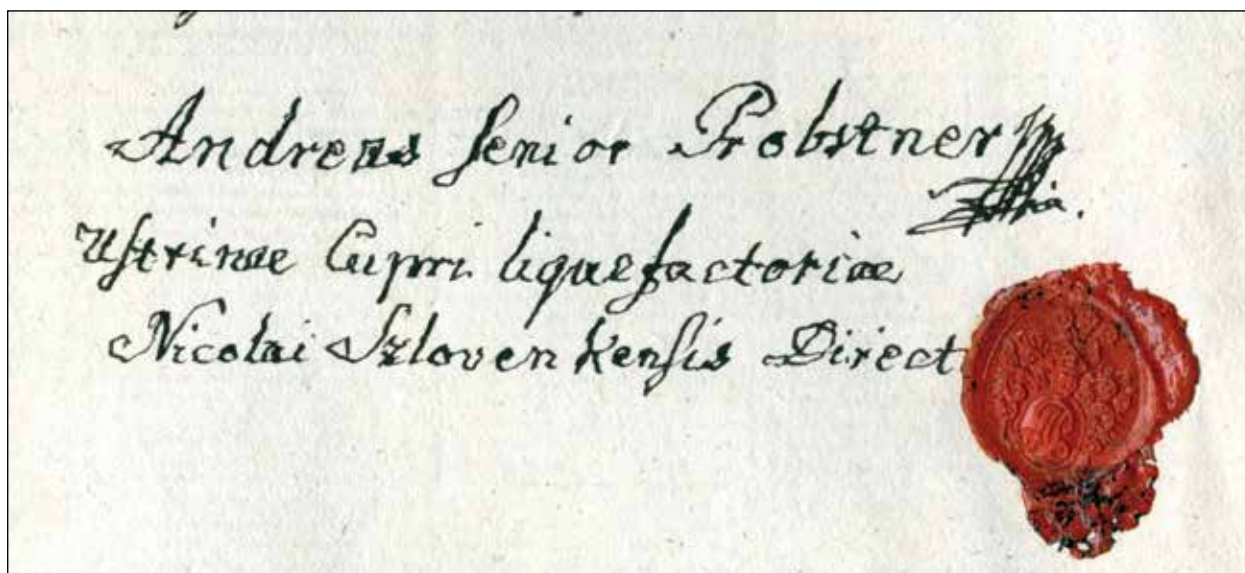 Andreas ſenior Probstner
Uſtrinae Cupri liquefactoriae
Nicolai Szlovenkenſis Direct